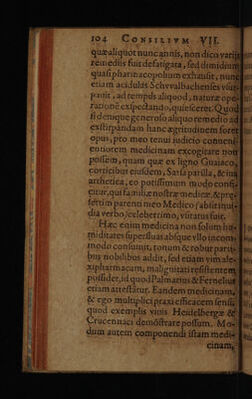 104 CONSILIVM VII.
quæ aliquot nunc annis, non dico varijs
remediis fuit defatigata, sed dimidium
quasi pharmacopolium exhausit, nunc
etiam acidulas Schvvalbachenses vsur-
pauit, ad tempus aliquod, naturæ ope-
rationē expectando, quiesceret. Quod
si denique generoso aliquo remedio ad
exstirpandam hanc ægritudinem foret
opus, pro meo tenui iudicio conueni-
entiorem medicinam excogitare non
possem, quam quæ ex ligno Guaiaco,
corticibus eiusdem, Sarsa parilla, & iua
arthetica, eo potissimum modo confi-
citur, qui familiæ nostræ medicæ, & præ-
sertim parenti meo Medico (absit inui-
dia verbo) celeberrimo, vsitatus fuit.
Hæc enim medicina non solum hu-
miditates superfluas absque vllo incom-
modo consumit, totum & robur parti-
bus nobilibus addit, sed etiam vim ale-
xipharmacam, malignitati resistentem
possidet, id quod Palmarius & Fernelius
etiam attestātur. Eandem medicinam,
& ego multiplici praxi efficacem sensi,
quod exemplis viuis Heidelbergæ &
Crucennaci demōstrare possum. Mo-
dum autem componendi istam medi-
cinam,